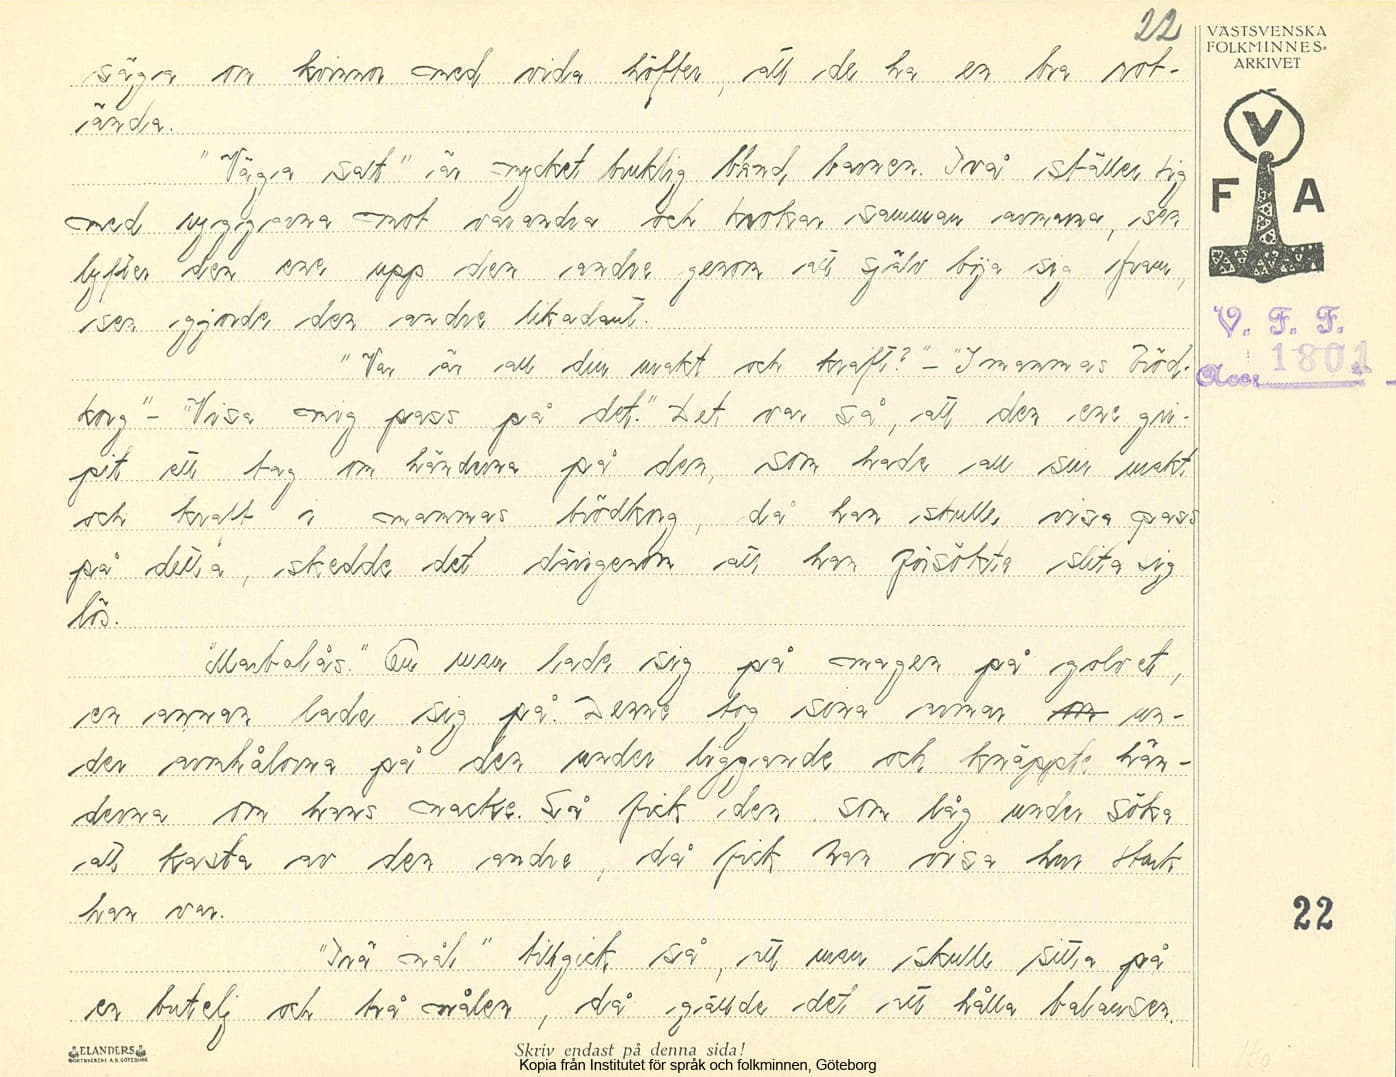 22
säga om kvinnor med vida höfter, att de ha en bra rot-
ända.
"Väga salt" är mycket bruklig bland barnen. Två ställer sig
med ryggarna mot varandra och krokar samman armarna, sen
lyfter den ene upp den andre genom att själv böja sig fram,
sen gjorde den andre likadant.
"Var är all din makt och kraft?" – "I mammas bröd-
korg" – "Visa mig pass på det." Det var så, att den ene gri-
pit ett tag om händerna på den, som hade all sin makt
och kraft i mammas brödkorg, då han skulle visa pass
på detta, skedde det därigenom att han försökte slita sig
lös.
"Marbolås." En man lade sig på magen på golvet,
en annan lade sig på. Denne tog sina armar om un-
der armhålorna på den under liggande och knäppte hän-
derna om hans nacke. Så fick den som låg under söka
att kasta av den andre, då fick han visa hur stark
han var.
"Trä nål" tillgick så, att man skulle sitta på
en butelj och trä nålen, då gällde det att hålla balansen.
VÄSTSVENSKA
FOLKMINNES-
ARKIVET
V
F A
V. F. F.
Acc. 1801
22
ELANDERS
Skriv endast på denna sida!
Kopia från Institutet för språk och folkminnen, Göteborg